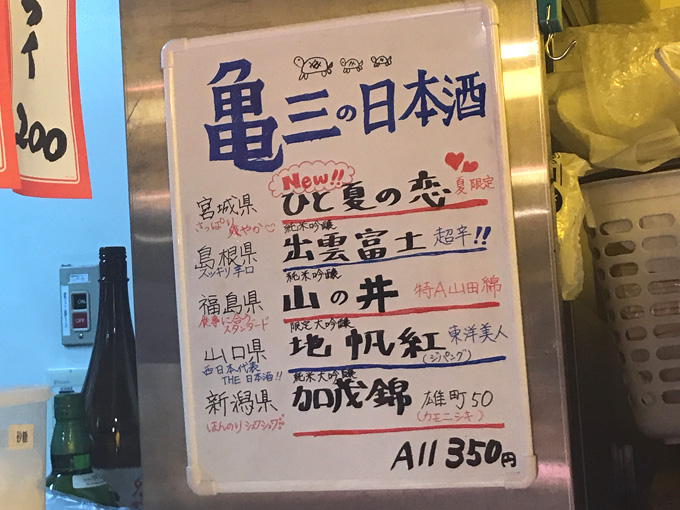 イ
200
亀三の日本酒
New!!
宮城県 ひと夏の恋 夏限定
さっぱり爽やか
純米吟醸
島根県 出雲富士 超辛!!
スッキリ辛口
純米吟醸
福島県 山の井 特A山田錦
食事に合うスタンダード
限定大吟醸
山口県 地帆紅 東洋美人
(ジパング)
西日本代表
THE 日本酒!!
純米大吟醸
新潟県 加茂錦 雄町50
ほんのりシュワシュワ
(カモニシキ)
All 350円
ON
OFF
砂糖